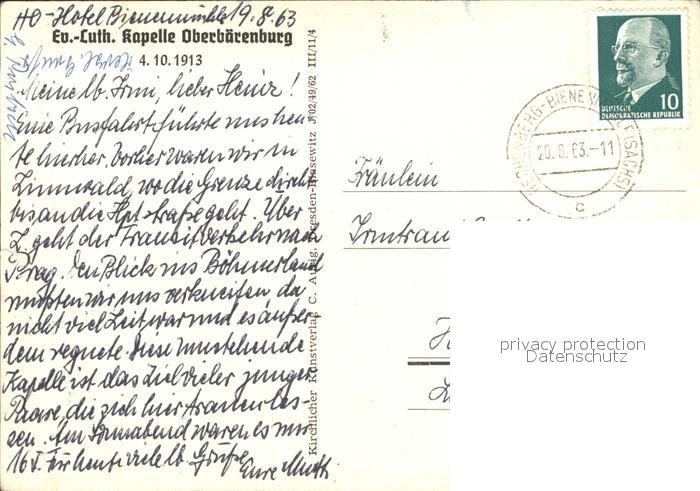 HO-Hotel Bienenmühle 19.8.63
Ev.-Luth. Kapelle Oberbärenburg
4. 10. 1913
Meine lb. Irmi, lieber Heinz!
Eine Busfahrt führte uns heu-
te hierher. Vorher waren wir in
Zinnwald, wo die Grenze direkt
bis an die Hptstraße geht. Über
Z. geht der Transitverkehr nach
Prag. Den Blick ins Böhmerland
mußten wir uns verkneifen da
nicht viel Zeit war und es außer-
dem regnete. Diese umstehende
Kapelle ist das Ziel vieler junger
Paare, die sich hier trauen las-
sen. Am Sonnabend waren es nur
16 . Für heute viele lb. Grüße
Eure Mutti
Kirchlicher Kunstverlag C. Aurig, Dresden-Blasewitz J/02/49/62 III/11/4
DEUTSCHE
DEMOKRATISCHE REPUBLIK
10
RECHENBERG-BIENENMÜHLE (SACHS)
20.8.63.-11
c
Fräulein
Irmtrau
privacy protection
Datenschutz